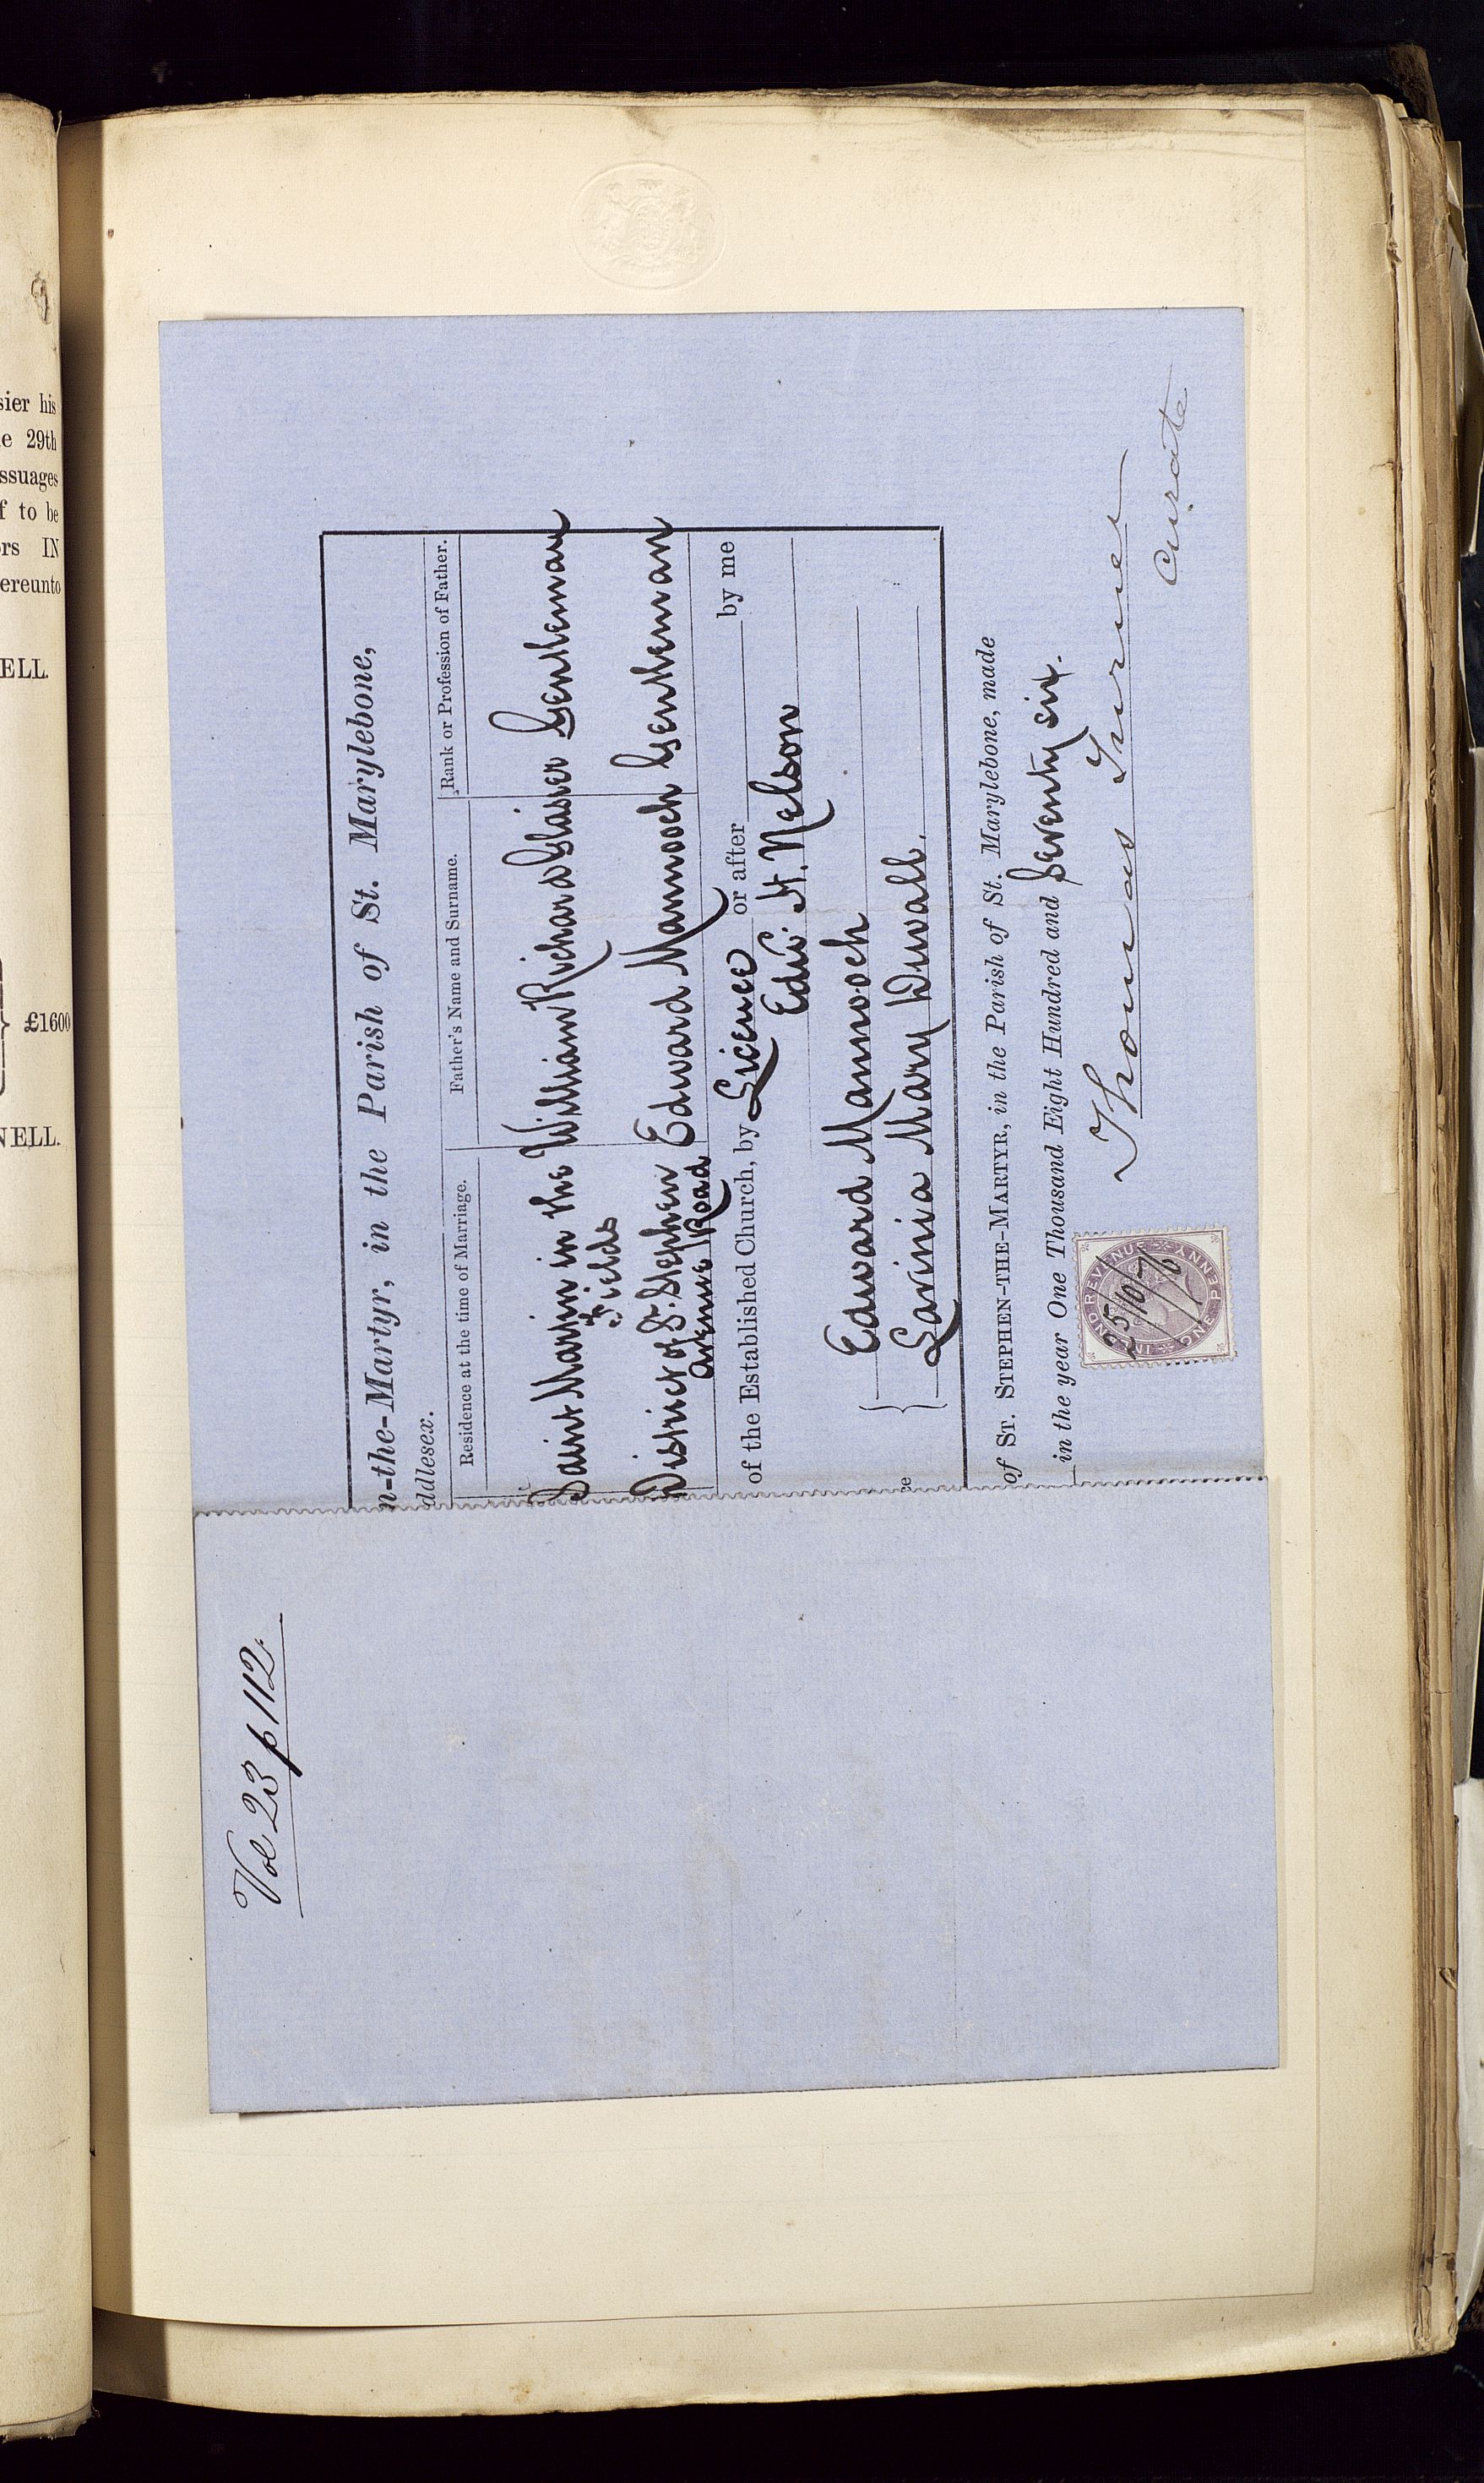 sier his
e 29th
ssuages
f to be
rs IN
ereunto
ELL.
£1600
NELL.
Vol 23 p 112
n-the-Martyr, in the Parish of St. Marylebone,
ddlesex.
Residence at the time of Marriage. Father's Name and Surname. Rank or Profession of Father.
Saint Martin in the Fields William Richard Glasier Gentleman
District of St. Stephen Avenue Road Edward Mannooch Gentleman
of the Established Church, by Licence or after by me
Edw. H. Nelson
Edward Mannooch
Lavinia Mary Duvall.
ce
of ST. STEPHEN-THE-MARTYR, in the Parish of St. Marylebone, made
in the year One Thousand Eight Hundred and Seventy six.
INLAND REVENUE ONE PENNY
25/10/76
Thomas Turner
Curate